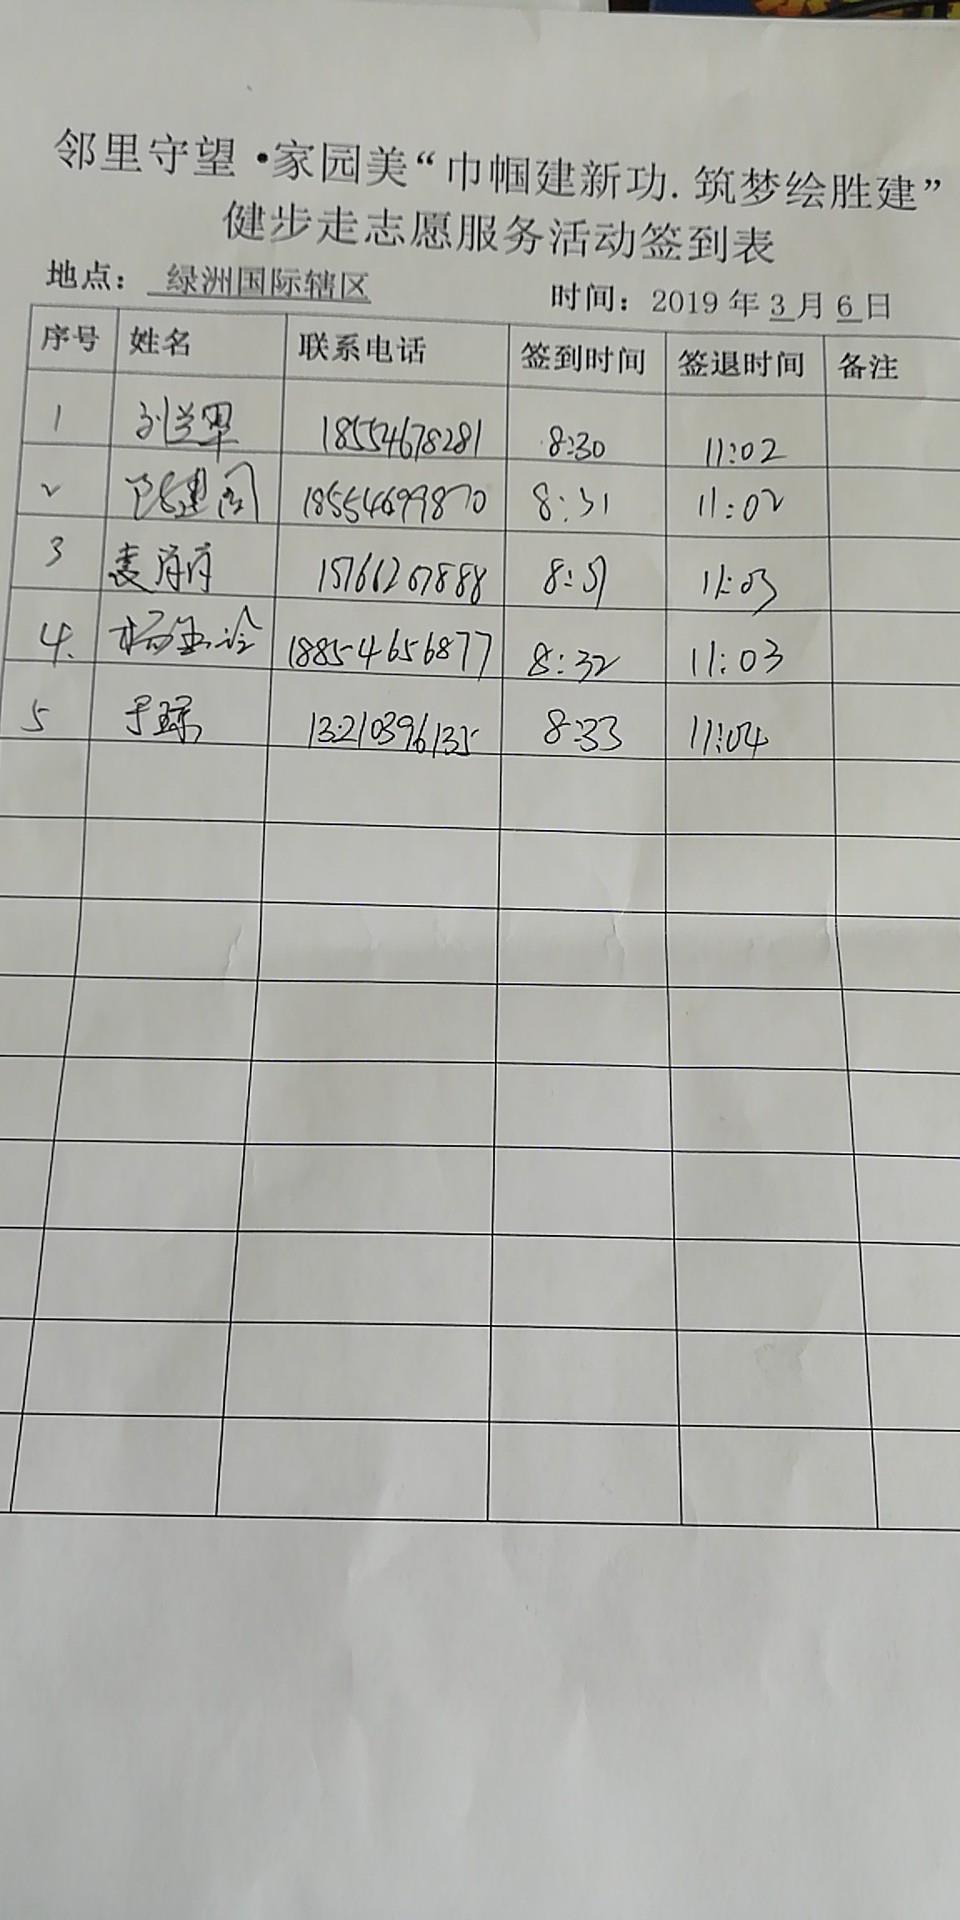 邻里守望·家园美“巾帼建新功.筑梦绘胜建”
健步走志愿服务活动签到表
地点：绿洲国际辖区 时间：2019年3月6日
序号 姓名 联系电话 签到时间 签退时间 备注
1 18554678281 8:30 11:02
2 18554699870 8:31 11:02
3 15766267888 11:03
4. 18854656877 8:32 11:03
5 于琼 13210396135 8:33 11:04